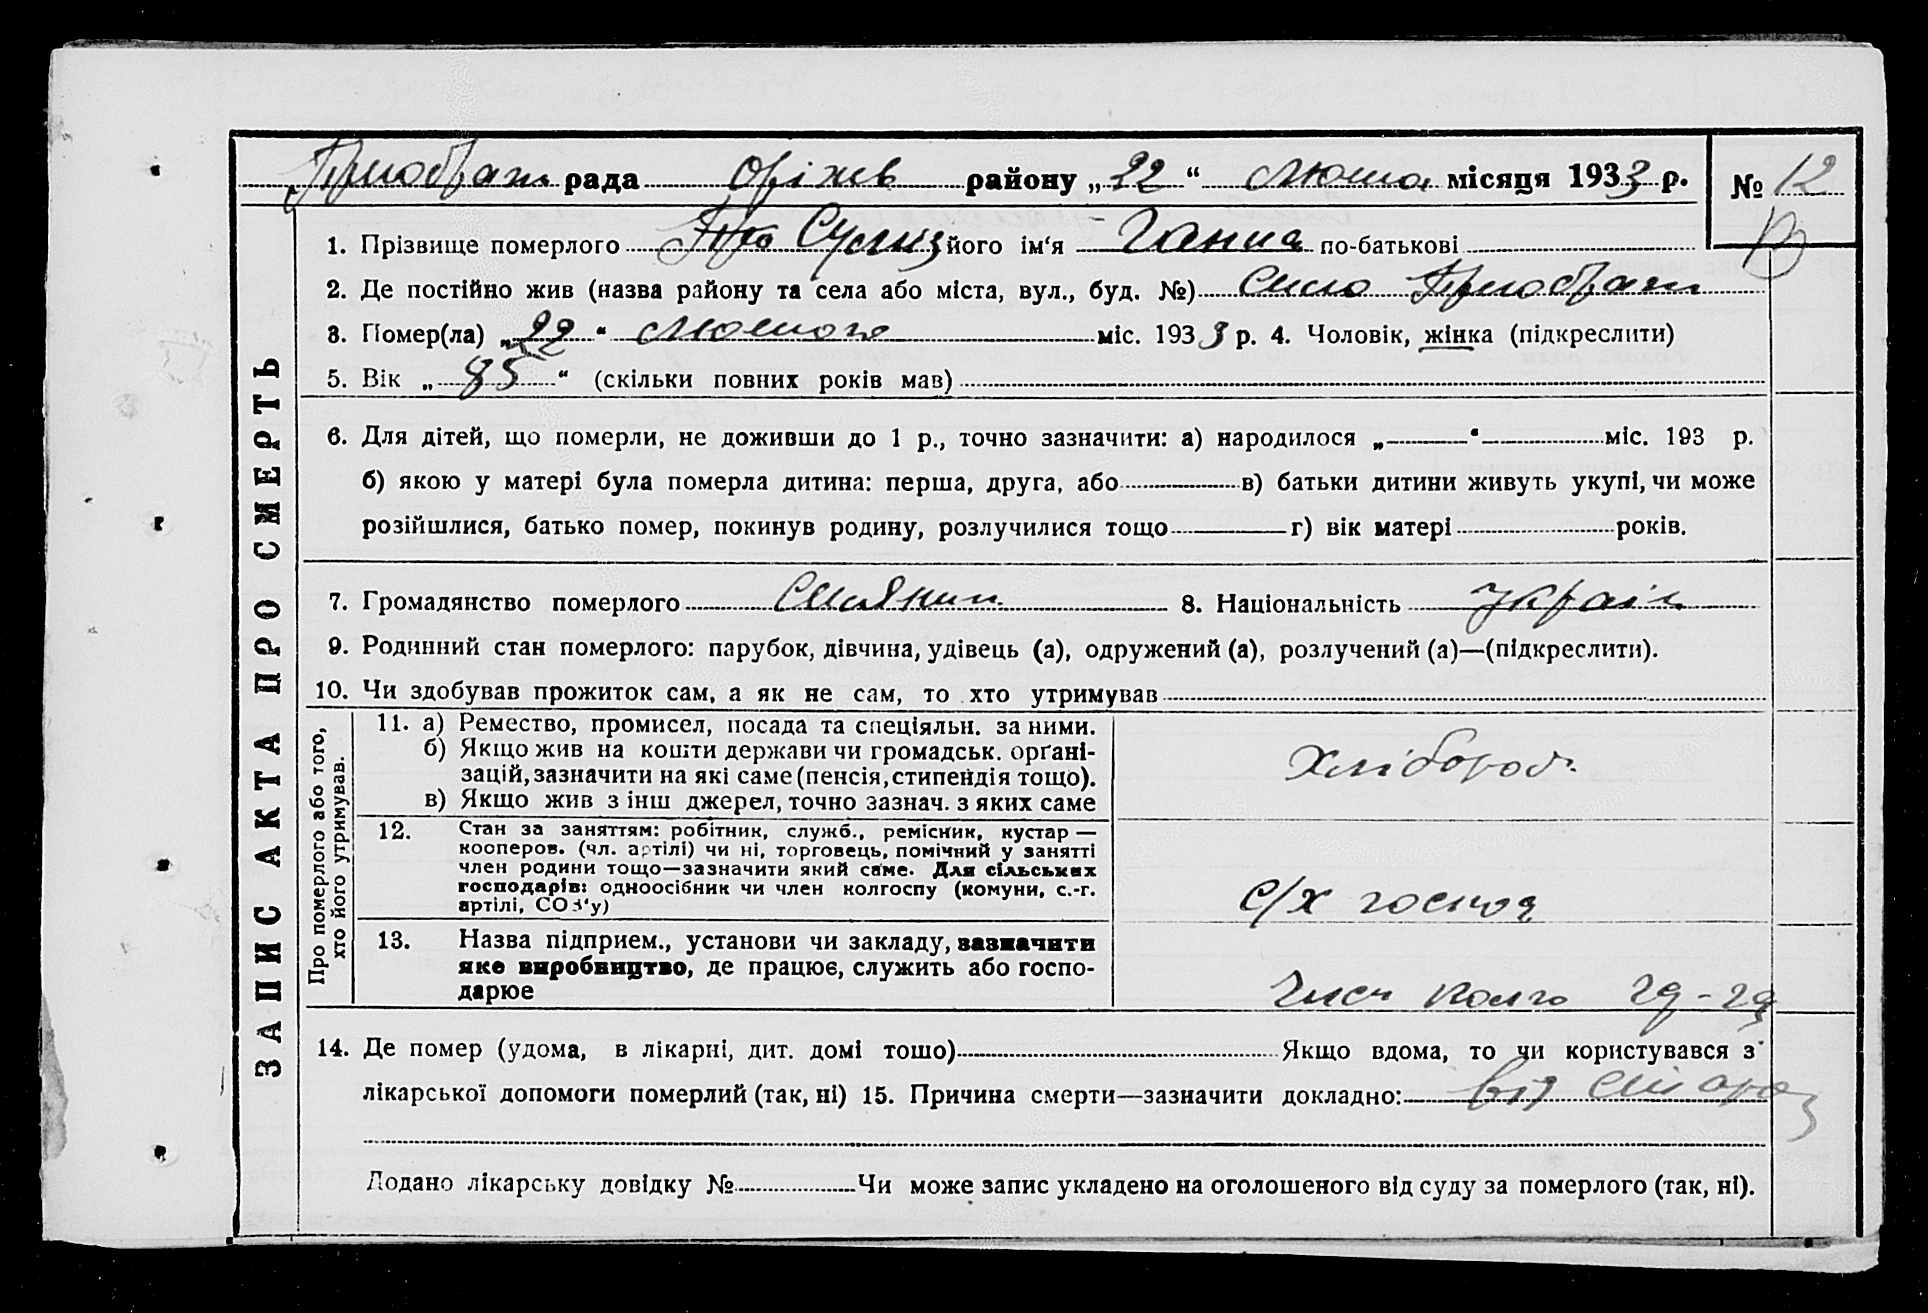 Приображ рада Оріхів району „22“ Лютого місяця 1933 р. № 12
1. Прізвище померлого його ім‘я Ганна по-батькові
2. Де постійно жив (назва району та села або міста, вул., буд. №) Село Приображ
3. Помер(ла) „22“ Лютого міс. 1933 р. 4. Чоловік, жінка (підкреслити)
5. Вік „85“ (скільки повних років мав)
6. Для дітей, що померли, не доживши до 1 р., точно зазначити: а) народилося „ “ міс. 193 р.
б) якою у матері була померла дитина: перша, друга, або в) батьки дитини живуть укупі, чи може
розійшлися, батько помер, покинув родину, розлучилися тощо г) вік матері років.
7. Громадянство померлого Селянин 8. Національність Україн
9. Родинний стан померлого: парубок, дівчина, удівець (а), одружений (а), розлучений (а)—(підкреслити).
10. Чи здобував прожиток сам, а як не сам, то хто утримував
Про померлого або того,
хто його утримував.
11. а) Ремество, промисел, посада та спеціяльн. за ними.
б) Якщо жив на кошти держави чи громадськ. орґані-
зацій, зазначити на які саме (пенсія, стипендія тощо).
в) Якщо жив з інш джерел, точно зазнач. з яких саме
Хлібороб
12. Стан за заняттям: робітник, служб., ремісник, кустар —
кооперов. (чл. артілі) чи ні, торговець, помічний у занятті
член родини тощо—зазначити який саме. Для сільських
господарів: одноосібник чи член колгоспу (комуни, с.-г.
артілі, СОЗ‘у)
с/х господ
13. Назва підприєм., установи чи закладу, зазначити
яке виробництво, де працює, служить або госпо-
дарює
Член колго
14. Де помер (удома, в лікарні, дит. домі тошо) Якщо вдома, то чи користувався з
лікарської допомоги померлий (так, ні) 15. Причина смерти—зазначити докладно: від старос
Додано лікарську довідку № Чи може запис укладено на оголошеного від суду за померлого (так, ні).
ЗАПИС АКТА ПРО СМЕРТЬ